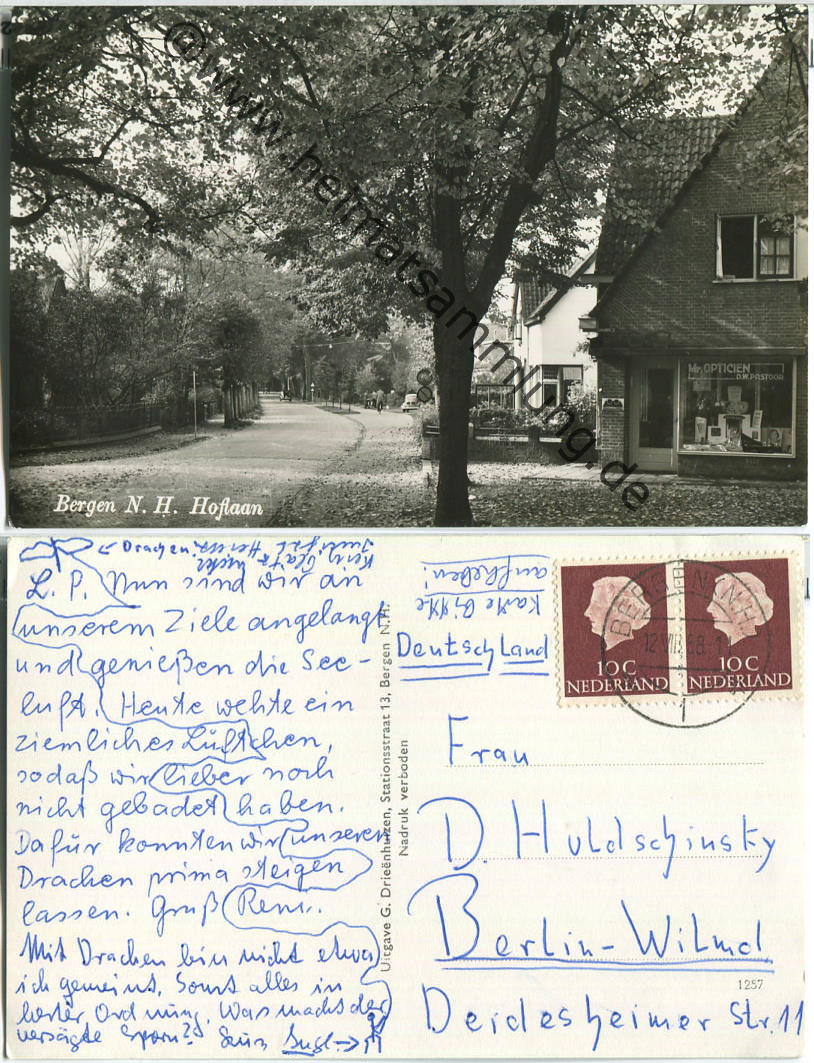 ©www.heimatsammlung.de
Mr. OPTICIEN
D.W. PASTOOR
Bergen N. H. Hoflaan
→ Drachen
L. P. Nun sind wir an
unserem Ziele angelangt
und genießen die See-
luft. Heute wehte ein
ziemliches Lüftchen,
sodaß wir lieber noch
nicht gebadet haben.
Dafür konnten wir unseren
Drachen prima steigen
lassen. Gruß
Mit Drachen bin nicht etwa
ich gemeint. Sonst alles in
bester Ordnung. Was macht der
Sporn?
Uitgave G. Drieënhuizen, Stationsstraat 13, Bergen N.H.
Nadruk verboden
Karte bitte
aufheben!
Deutschland
BERGEN (N.H.)
10 C
NEDERLAND
10 C
NEDERLAND
Frau
D. Huldschinsky
Berlin-Wilmd.
1257
Deidesheimer Str. 11